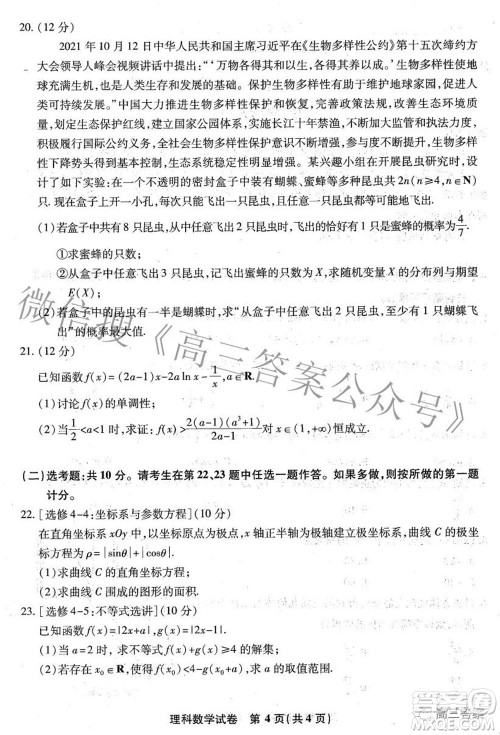 20. (12 分)
2021 年 10 月 12 日中华人民共和国主席习近平在《生物多样性公约》第十五次缔约方
大会领导人峰会视频讲话中提出：“‘万物各得其和以生，各得其养以成。’生物多样性使地
球充满生机，也是人类生存和发展的基础。保护生物多样性有助于维护地球家园，促进人
类可持续发展。”中国大力推进生物多样性保护和恢复，完善政策法规，改善生态环境质
量，划定生态保护红线，建立国家公园体系，实施长江十年禁渔，不断加大监管和执法力
度，积极履行国际公约义务，全社会生物多样性保护意识不断增强，参与度不断提升，生物
多样性下降势头得到基本控制，生态系统稳定性明显增强。某兴趣小组在开展昆虫研究时，设计
了如下实验：在一个大的密封盒子中装有蝴蝶、蜜蜂等多种昆虫共 2n(n≥4,n∈N)
只，现在盒子上开一小孔，每次只能飞出 1 只昆虫(假设任意 1 只昆虫等可能地飞出).
(1)若盒子中共有 8 只昆虫，从中任意飞出 2 只昆虫时，恰有 1 只蜜蜂飞出的概率是 4/7.
①求蜜蜂的只数；
②从盒子中任意飞出 3 只昆虫，记飞出蜜蜂的只数为 X，求随机变量 X 的分布列与期望
E(X);
(2)若盒子中的昆虫有一半是蝴蝶时，求“从盒子中任意飞出 2 只昆虫，至少有 1 只蝴蝶飞
出”的概率最大值.
21. (12 分)
已知函数 f(x)=(2a-1)x-2a ln x-1/x, a∈R.
(1)讨论 f(x)的单调性；
(2)当 1/2<a<1时，求证 f(x)>2(a-1)(a³+1)/(2a-1) 对 x∈(2a-1,+∞)恒成立.
(二)选考题：共 10 分。请考生在第 22、23 题中任选一题作答。如果多做，则按所做的第一题
计分。
22. [选修 4-4：坐标系与参数方程](10 分)
在直角坐标系 xOy 中，以坐标原点为极点，x 轴正半轴为极轴建立极坐标系，曲线 C 的极坐
标方程为 ρ=|sinθ|+|cosθ|.
(1)求曲线 C 的直角坐标方程；
(2)求曲线 C 所围成的图形的面积.
23. [选修 4-5：不等式选讲](10 分)
已知函数 f(x)=|2x+a|,g(x)=|2x-1|.
(1)当 a=2 时，求不等式 f(x)+g(x)<4的解集；
(2)若存在 x₀∈R，使得不等式 f(x₀)<4-g(x₀)成立，求实数 a 的取值范围.
理科数学试卷 第 4 页(共 4 页)
微信搜《高三答案公众号》
高三答案